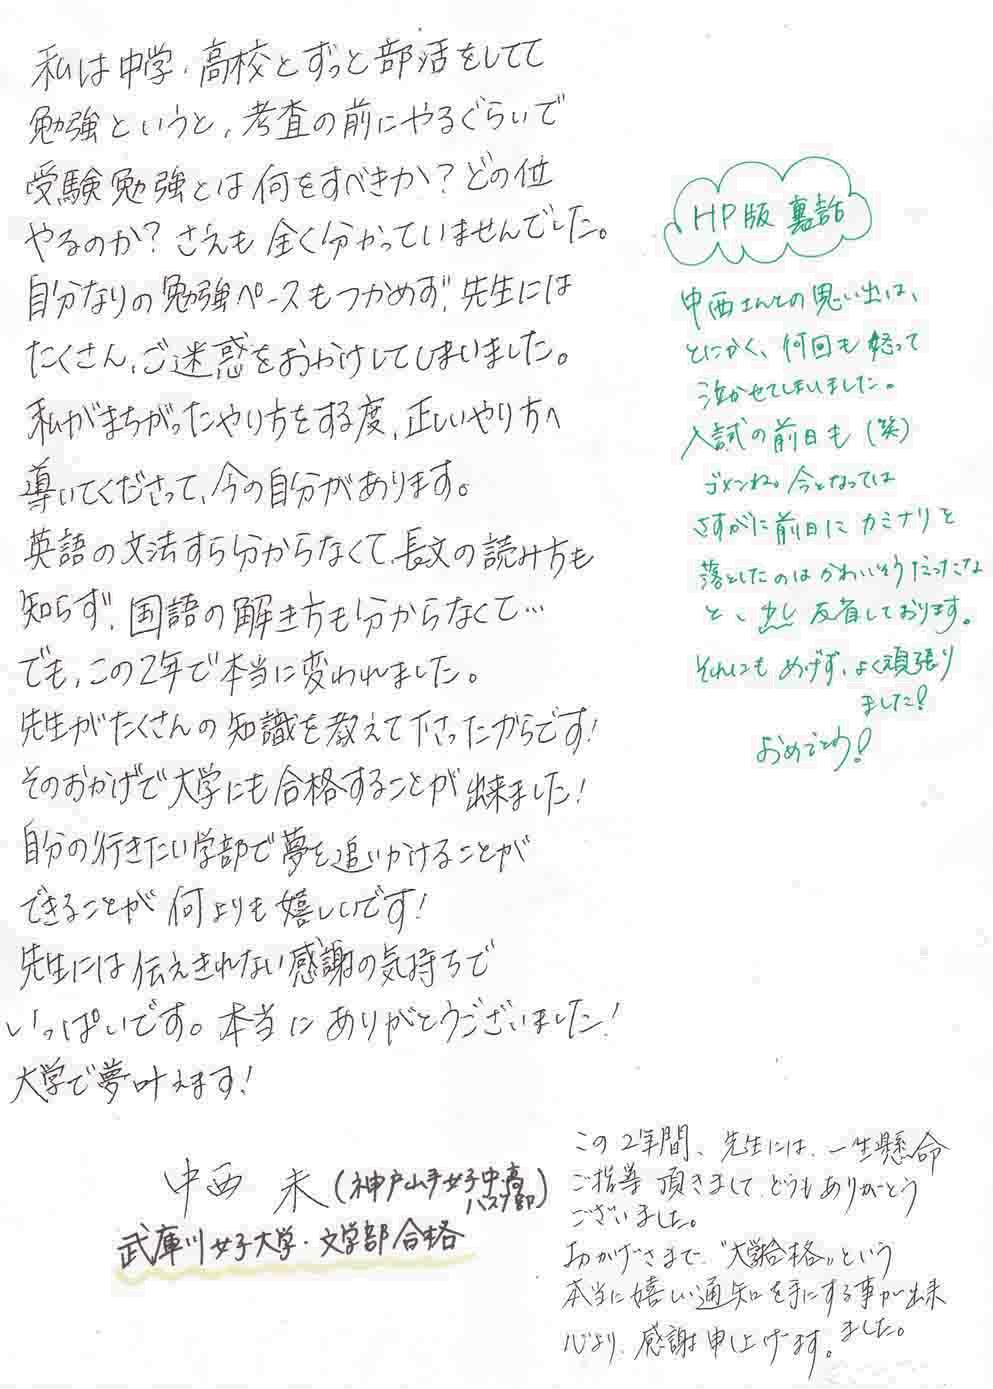 私は中学・高校とずっと部活をしてて
勉強というと、考査の前にやるぐらいで
受験勉強とは何をすべきか？どの位
やるのか？さえも全く分かっていませんでした。
自分なりの勉強ペースもつかめず、先生には
たくさん、ご迷惑をおかけしてしまいました。
私がまちがったやり方をする度、正しいやり方へ
導いてくださって、今の自分があります。
英語の文法すら分からなくて、長文の読み方も
知らず、国語の解き方も分からなくて…
でも、この2年で本当に変われました。
先生がたくさんの知識を教えて下さったからです！
そのおかげで大学にも合格することが出来ました！
自分の行きたい学部で夢を追いかけることが
できることが何よりも嬉しいです！
先生には伝えきれない感謝の気持ちで
いっぱいです。本当にありがとうございました！
大学で夢叶えます！
中西 未（神戸山手女子中・高
バスケ部）
武庫川女子大学・文学部合格
HP版 裏話
中西さんとの思い出は、
とにかく、何回も怒って
泣かせてしまいました。
入試の前日も（笑）
ゴメンね。今となっては
さすがに前日にカミナリを
落としたのはかわいそうだったな
と、少し反省しております。
それにもめげず、よく頑張り
ました！
おめでとう！
この2年間、先生には、一生懸命
ご指導頂きまして、どうもありがとう
ございました。
おかげさまで、“大学合格”という
本当に嬉しい通知を手にする事が出来
ました。
心より、感謝申し上げます。